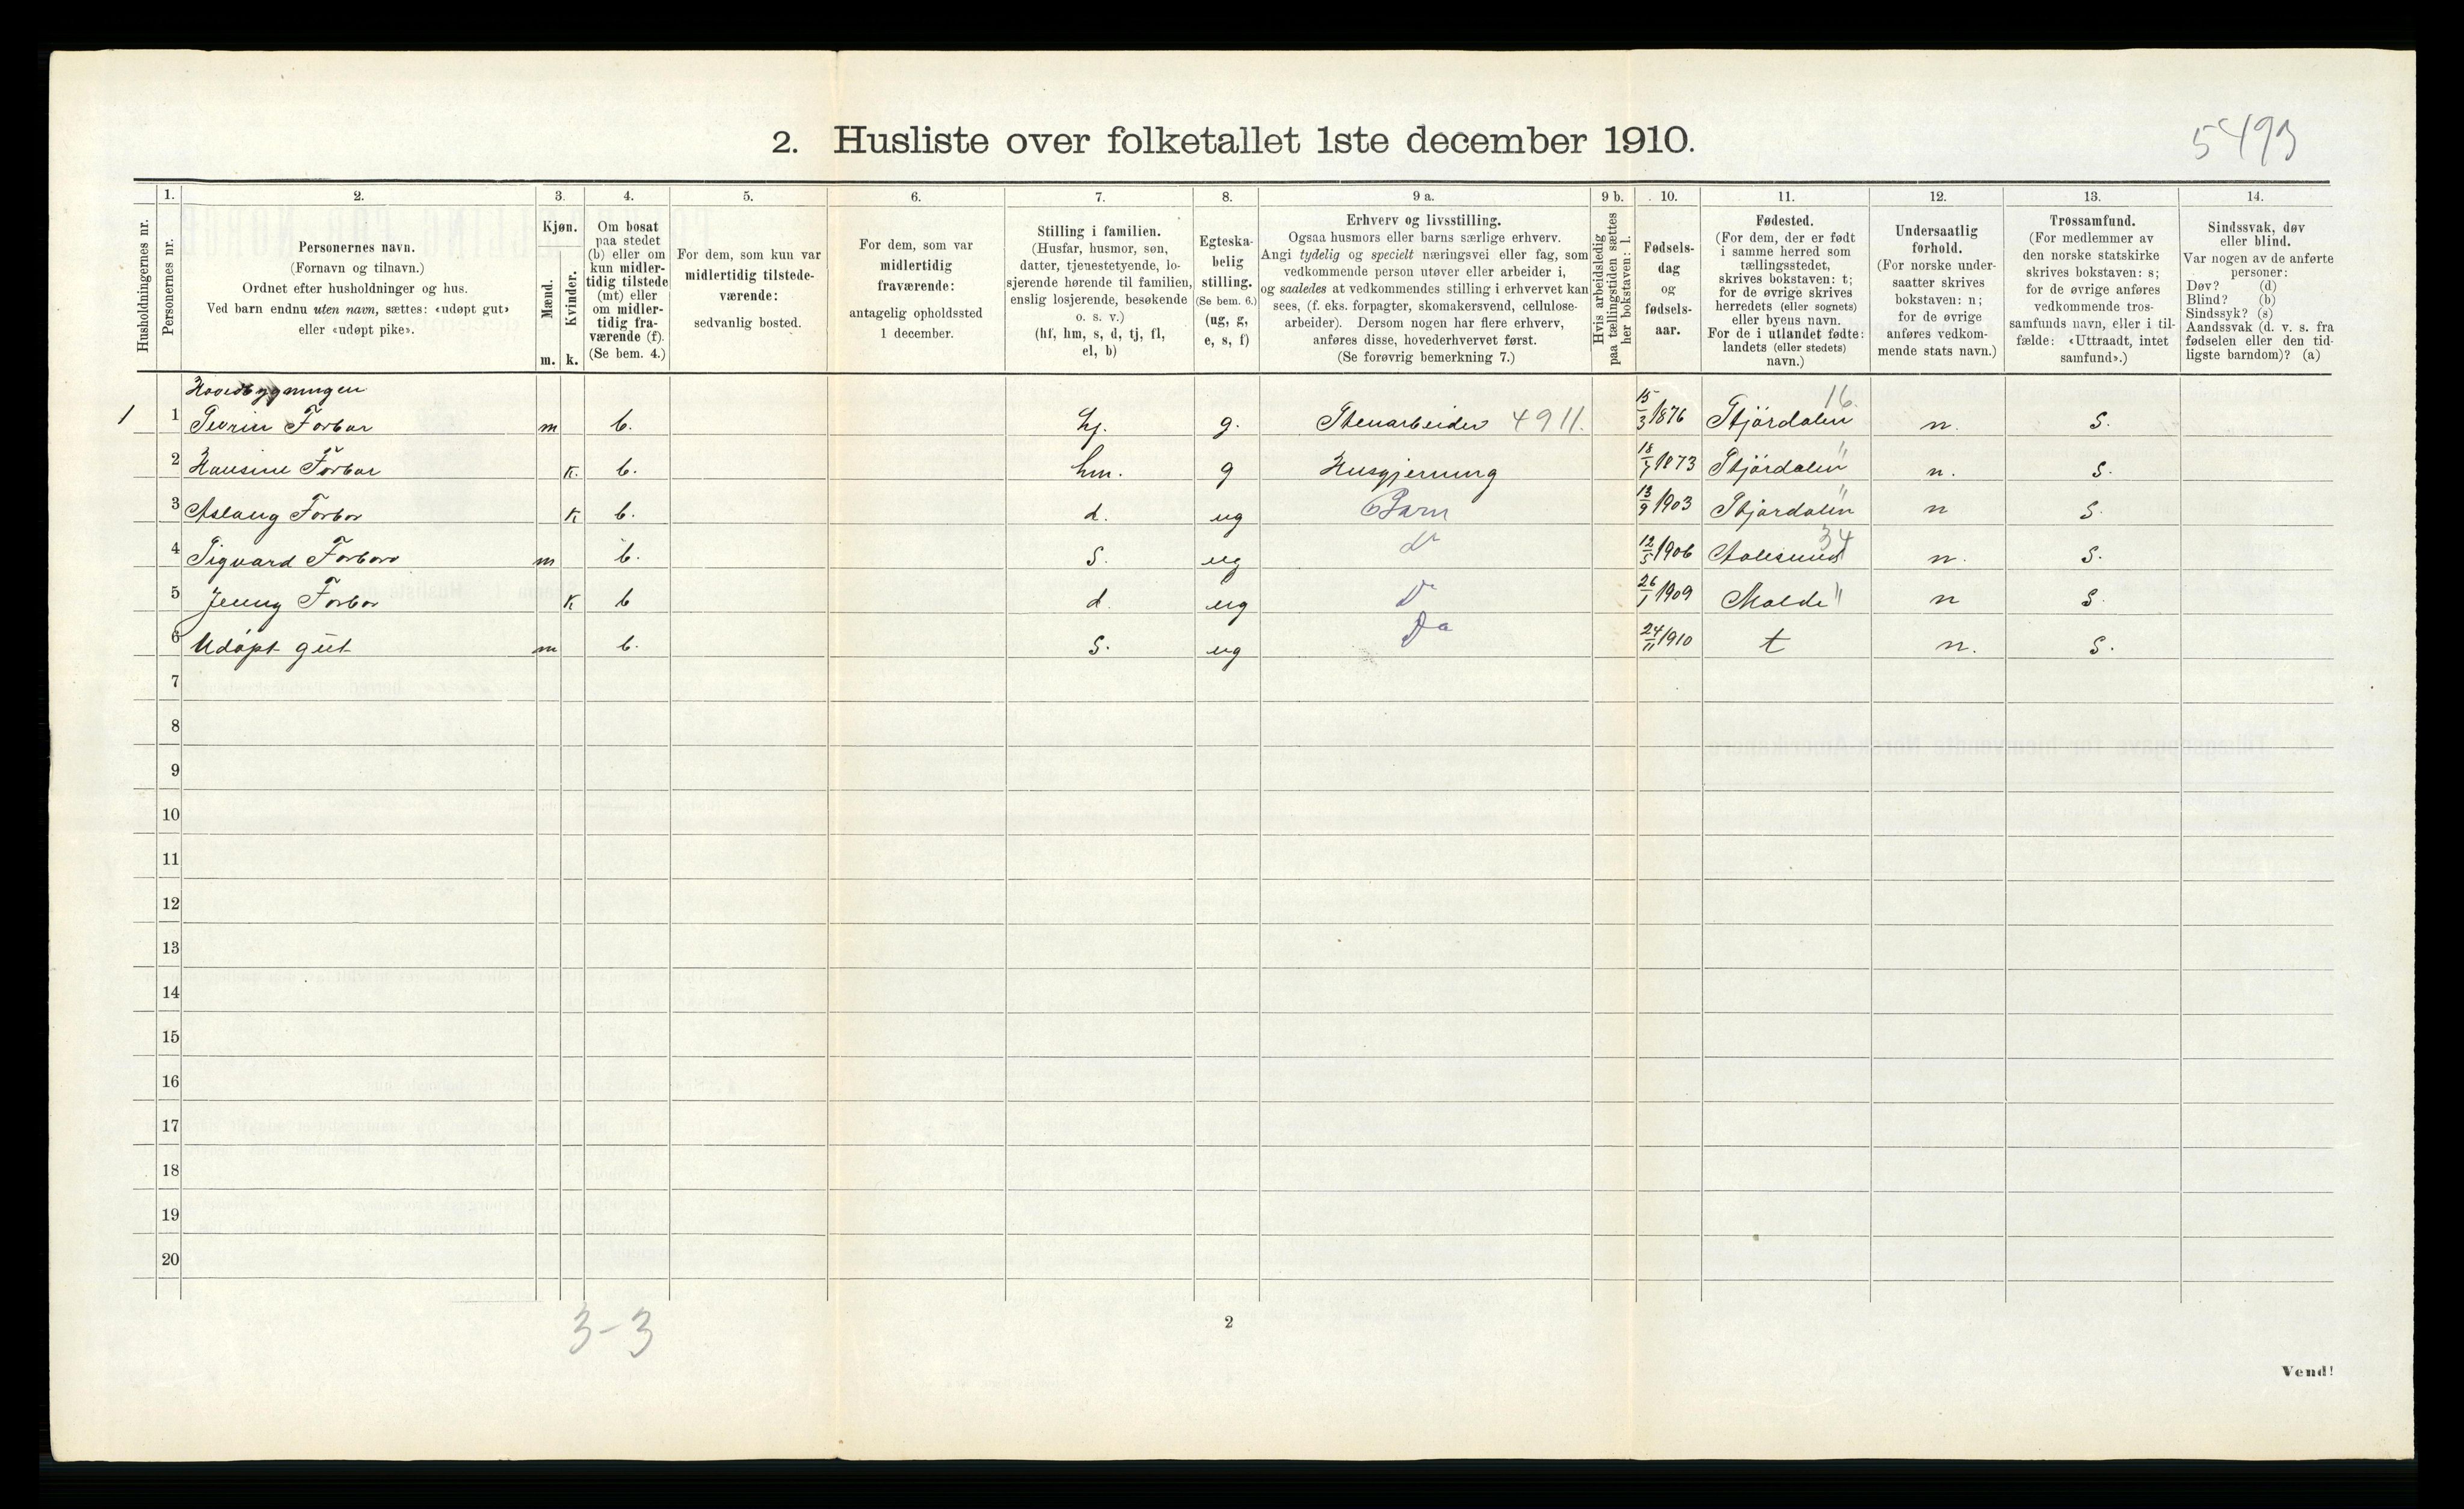 2. Husliste over folketallet 1ste december 1910.
5493
Husholdningernes nr.
1.
Personernes nr.
2.
Personernes navn.
(Fornavn og tilnavn.)
Ordnet efter husholdninger og hus.
Ved barn endnu uten navn, sættes: «udøpt gut»
eller «udøpt pike».
3.
Kjøn.
Mænd.
Kvinder.
m. k.
4.
Om bosat
paa stedet
(b) eller om
kun midler-
tidig tilstede
(mt) eller
om midler-
tidig fra-
værende (f).
(Se bem. 4.)
5.
For dem, som kun var
midlertidig tilstede-
værende:
sedvanlig bosted.
6.
For dem, som var
midlertidig
fraværende:
antagelig opholdssted
1 december.
7.
Stilling i familien.
(Husfar, husmor, søn,
datter, tjenestetyende, lo-
sjerende hørende til familien,
enslig losjerende, besøkende
o. s. v.)
(hf, hm, s, d, tj, fl,
el, b)
8.
Egteska-
belig
stilling.
(Se bem. 6.)
(ug, g,
e, s, f)
9 a.
Erhverv og livsstilling.
Ogsaa husmors eller barns særlige erhverv.
Angi tydelig og specielt næringsvei eller fag, som
vedkommende person utøver eller arbeider i,
og saaledes at vedkommendes stilling i erhvervet kan
sees, (f. eks. forpagter, skomakersvend, cellulose-
arbeider). Dersom nogen har flere erhverv,
anføres disse, hovederhvervet først.
(Se forøvrig bemerkning 7.)
9 b.
Hvis arbeidsledig
paa tællingstiden sættes
her bokstaven: l.
10.
Fødsels-
dag
og
fødsels-
aar.
11.
Fødested.
(For dem, der er født
i samme herred som
tællingsstedet,
skrives bokstaven: t;
for de øvrige skrives
herredets (eller sognets)
eller byens navn.
For de i utlandet fødte:
landets (eller stedets)
navn.)
12.
Undersaatlig
forhold.
(For norske under-
saatter skrives
bokstaven: n;
for de øvrige
anføres vedkom-
mende stats navn.)
13.
Trossamfund.
(For medlemmer av
den norske statskirke
skrives bokstaven: s;
for de øvrige anføres
vedkommende tros-
samfunds navn, eller i til-
fælde: «Uttraadt, intet
samfund».)
14.
Sindssvak, døv
eller blind.
Var nogen av de anførte
personer:
Døv? (d)
Blind? (b)
Sindssyk? (s)
Aandssvak (d. v. s. fra
fødselen eller den tid-
ligste barndom)? (a)
Hovedbygningen
1 1 Forbor m b. hf. g. Stenarbeider 4911. 15/3 1876 Stjördalen 16. n. S.
2 Hansine Forbor k. b. hm. g Husgjerning 18/7 1873 Stjördalen " n. S.
3 Aslaug Forbor k b. d. ug Barn 13/9 1903 Stjördalen " n S.
4 Sigvard Forbor m b. S. ug do 12/5 1906 Aalesund 34 n. S.
5 Jenny Forbor k b d. ug Do 26/1 1909 Molde " n S.
6 Udöpt gut m b. S. ug Do 24/11 1910 t n. S.
7
8
9
10
11
12
13
14
15
16
17
18
19
20
3-3
2
Vend!